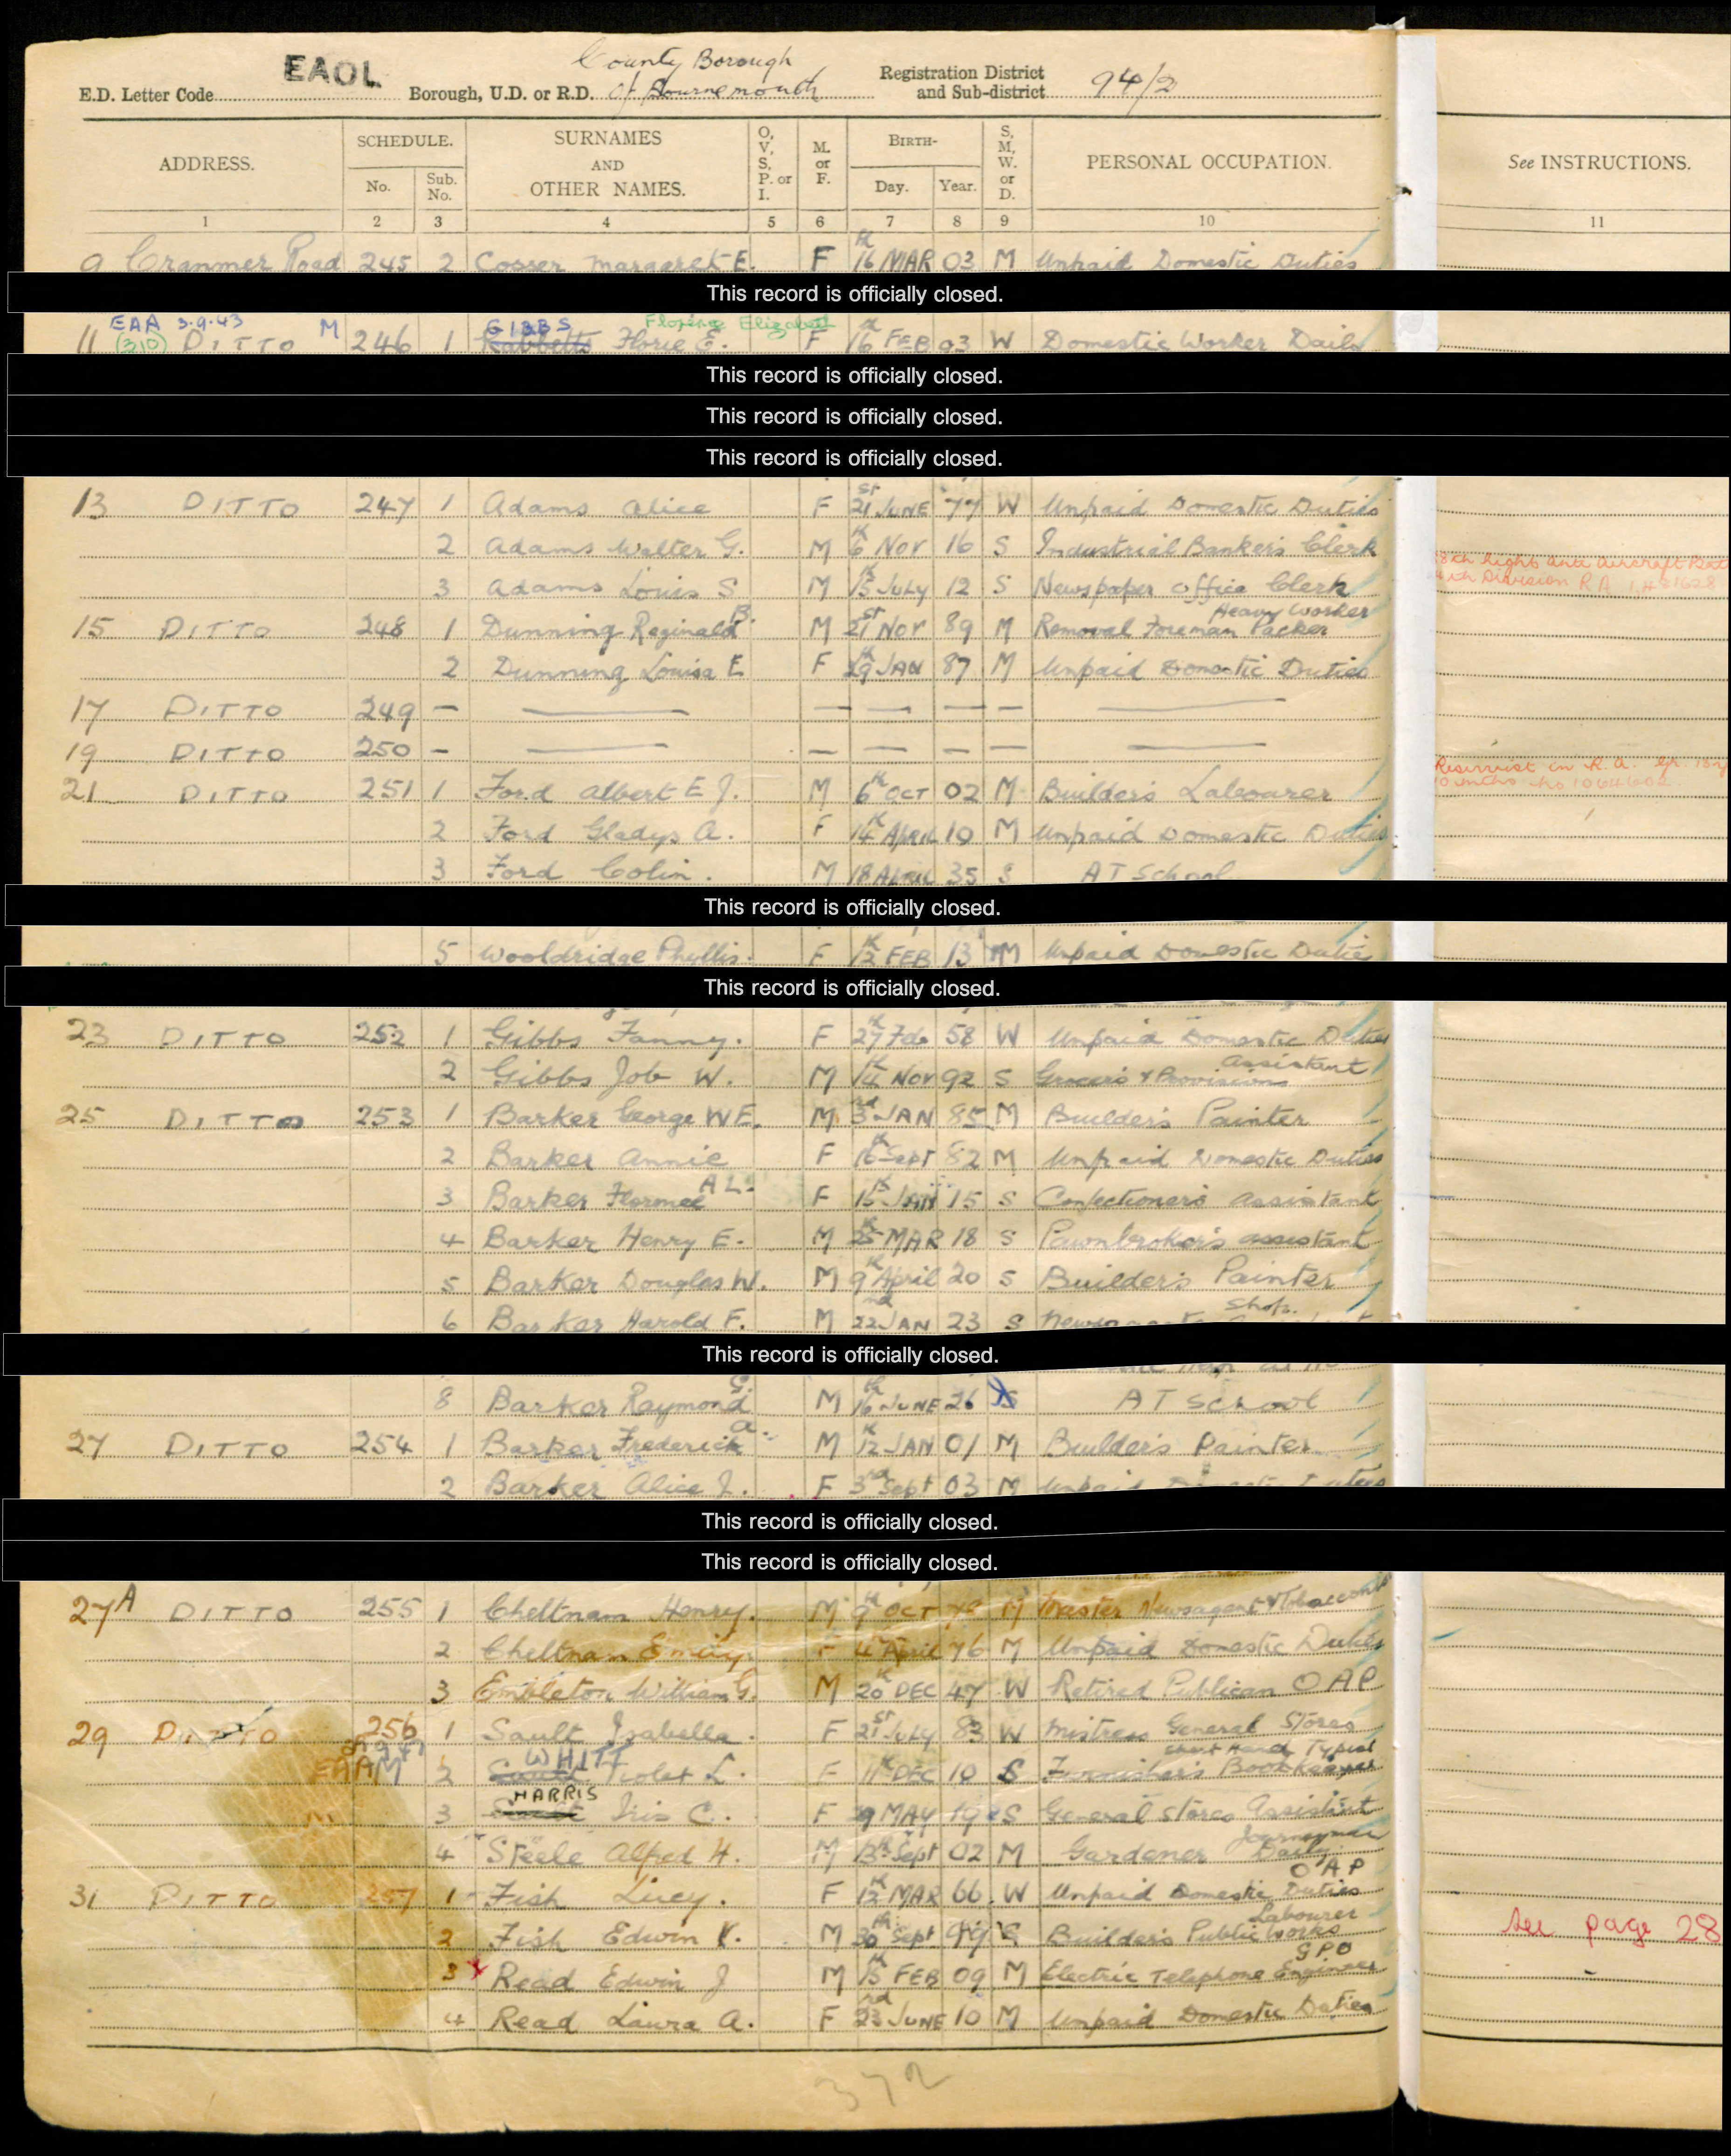 EAOL
County Borough
E.D. Letter Code Borough, U.D. or R.D. Of Bournemouth Registration District and Sub-district 94/2
ADDRESS. SCHEDULE. No. Sub. No. SURNAMES AND OTHER NAMES. O, V, S, P. or I. M. or F. BIRTH- Day. Year. S, M, W. or D. PERSONAL OCCUPATION. See INSTRUCTIONS.
1 2 3 4 5 6 7 8 9 10 11
9 Cranmer Road 245 2 Cosser Margaret E. F 16th MAR 03 M Unpaid Domestic Duties
This record is officially closed.
EAA 3.9.43 M GIBBS Elizabeth
11 (310) DITTO 246 1 Florie E. F 16th FEB 03 W Domestic Worker Daily
This record is officially closed.
This record is officially closed.
This record is officially closed.
13 DITTO 247 1 Adams Alice F 21st JUNE 77 W Unpaid Domestic Duties
2 Adams Walter G. M 6th Nov 16 S Industrial Banker's Clerk
3 Adams Louis S M 13th July 12 S Newspaper Office Clerk
Heavy Worker
15 DITTO 248 1 Dunning Reginald B. M 21st Nov 89 M Removal Foreman Packer
2 Dunning Louisa E F 29th JAN 87 M Unpaid Domestic Duties
17 DITTO 249 — — — — — — —
19 DITTO 250 — — — — — — —
21 DITTO 251 1 Ford Albert E J. M 6th OCT 02 M Builder's Labourer
2 Ford Gladys A. F 14th April 10 M Unpaid Domestic Duties
3 Ford Colin. M 18 APRIL 35 S AT School
This record is officially closed.
5 Wooldridge Phyllis. F 12th FEB 13 M Unpaid Domestic Duties
This record is officially closed.
23 DITTO 252 1 Gibbs Fanny. F 27th Feb 58 W Unpaid Domestic Duties
2 Gibbs Job W. M 14th Nov 92 S Grocer's & Provisions Assistant
25 DITTO 253 1 Barker George W E. M 3rd JAN 85 M Builder's Painter
2 Barker Annie F 16th Sept 82 M Unpaid Domestic Duties
3 Barker Florence A L. F 15th JAN 15 S Confectioner's Assistant
4 Barker Henry E. M 25th MAR 18 S Pawnbroker's assistant
5 Barker Douglas W. M 9th April 20 S Builder's Painter
6 Barker Harold F. M 22nd JAN 23 S Shop.
This record is officially closed.
8 Barker Raymond G. M 16th JUNE 26 S AT School
27 DITTO 254 1 Barker Frederick A. M 12th JAN 01 M Builder's Painter
2 Barker Alice J. F 3rd Sept 03 M Unpaid Domestic Duties
This record is officially closed.
This record is officially closed.
27A DITTO 255 1 Cheltnam Henry. M 9th OCT M Master Newsagent & Tobacconist
2 Cheltnam Emily. F 4th April 76 M Unpaid Domestic Duties
3 Embleton William G. M 20th DEC 47 W Retired Publican OAP
29 DITTO 256 1 Sault Isabella. F 21st July 83 W Mistress General Stores
WHITT Short Hand Typist
EAAM 2 Sault Violet L. F 11th DEC 10 S Furnisher's Bookkeeper
HARRIS
M 3 Sault Iris C. F 9 MAY 19 S General Stores Assistant
4 Steele Alfred H. M 13th Sept 02 M Gardener Journeyman Daily
OAP
31 DITTO 257 1 Fish Lucy. F 12th MAR 66 W Unpaid Domestic Duties
2 Fish Edwin V. M 30th Sept S Builder's Public Works Labourer See page 28
3 Read Edwin J M 15th FEB 09 M Electric Telephone Engineer G.P.O
4 Read Laura A. F 23rd JUNE 10 M Unpaid Domestic Duties
372